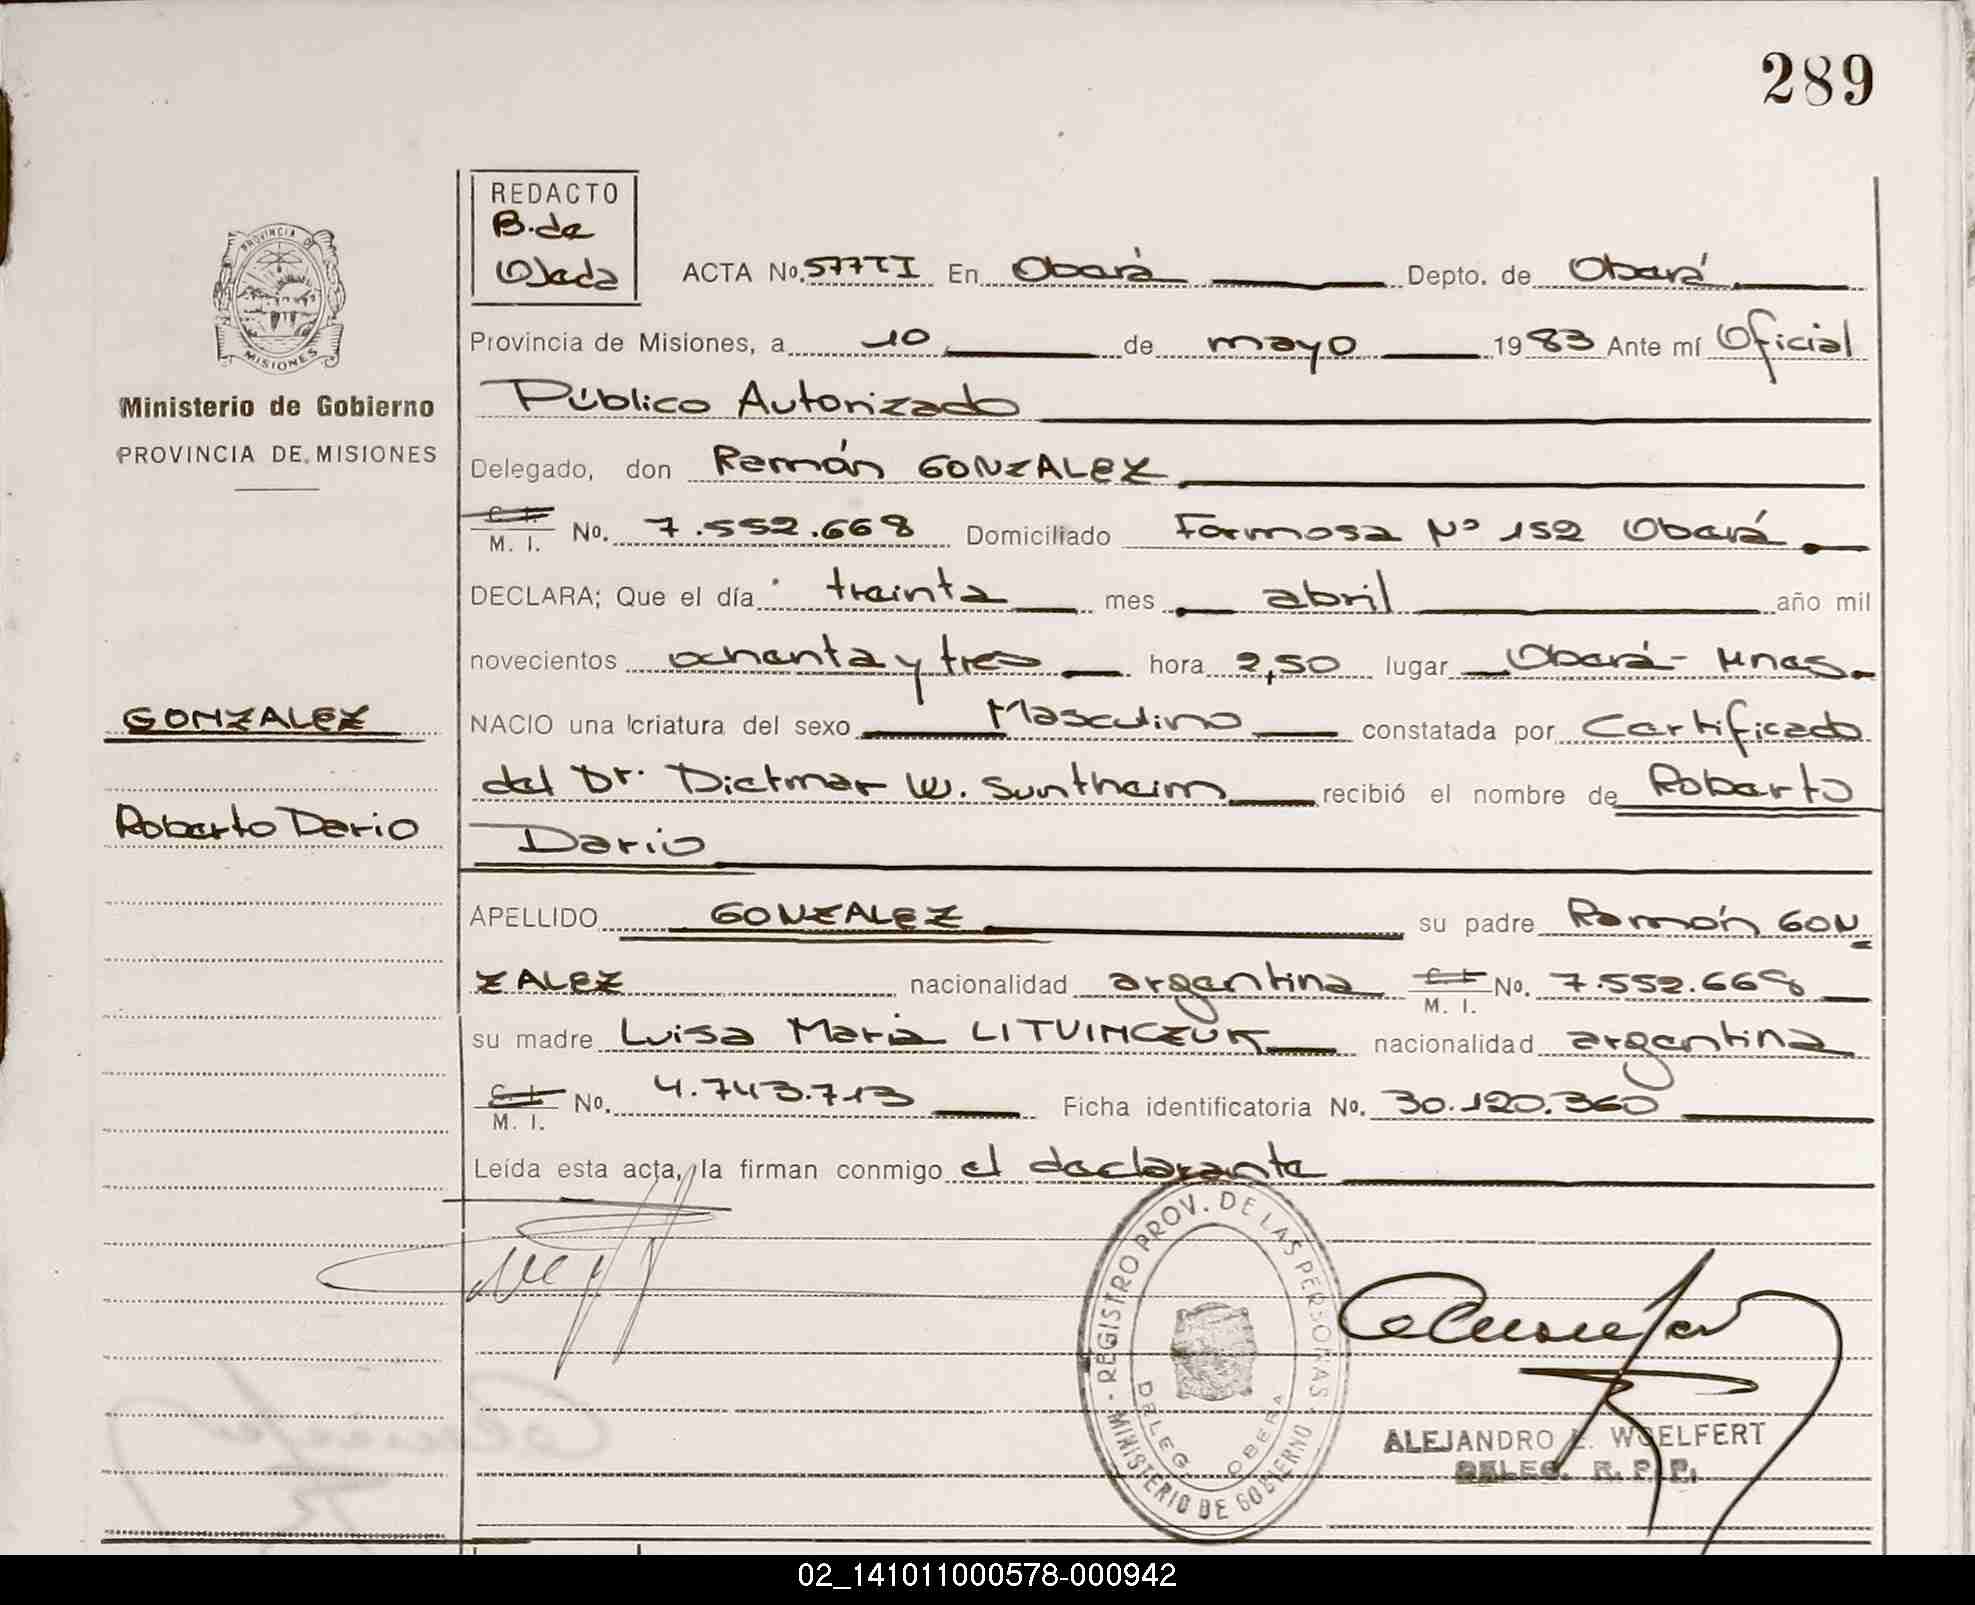 289
REDACTO
B. de
Ojeda
ACTA No. 577TI En Oberá Depto. de Oberá
Provincia de Misiones, a 10 de mayo 1983 Ante mí Oficial
Público Autorizado
Delegado, don Ramón GONZALEZ
C. I. M. I. No. 7.552.668 Domiciliado Formosa Nº 152 Oberá
DECLARA; Que el día treinta mes abril año mil
novecientos ochenta y tres hora 2,50 lugar Oberá- Mnes.
NACIO una criatura del sexo Masculino constatada por Certificado
del Dr. Dietmar W. Suntheim recibió el nombre de Roberto
Dario
APELLIDO GONZALEZ su padre Ramón GON
ZALEZ nacionalidad argentina C. I. M. I. No. 7.552.668
su madre Luisa Maria LITVINCZUK nacionalidad argentina
C. I. M. I. No. 4.743.713 Ficha identificatoria No. 30.120.360
Leída esta acta, la firman conmigo el declarante
PROVINCIA DE
MISIONES
Ministerio de Gobierno
PROVINCIA DE MISIONES
GONZALEZ
Roberto Dario
REGISTRO PROV. DE LAS PERSONAS
MINISTERIO DE GOBIERNO
DELEG. OBERA
ALEJANDRO E. WOELFERT
DELEG. R. P. P.
02_141011000578-000942